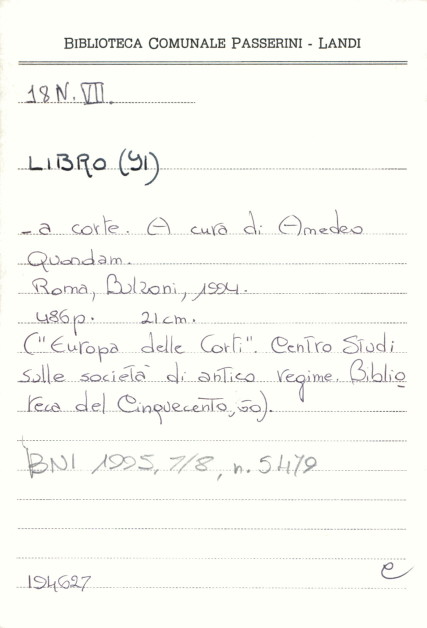 BIBLIOTECA COMUNALE PASSERINI - LANDI
18 N. VII.
LIBRO (Il)
- a corte. A cura di Amedeo
Quondam.
Roma, Bulzoni, 1994.
486 p. 21 cm.
("Europa delle Corti". Centro Studi
sulle società di antico regime. Biblio
teca del Cinquecento, 60).
BNI 1995, 7/8, n. 5479
194627
e